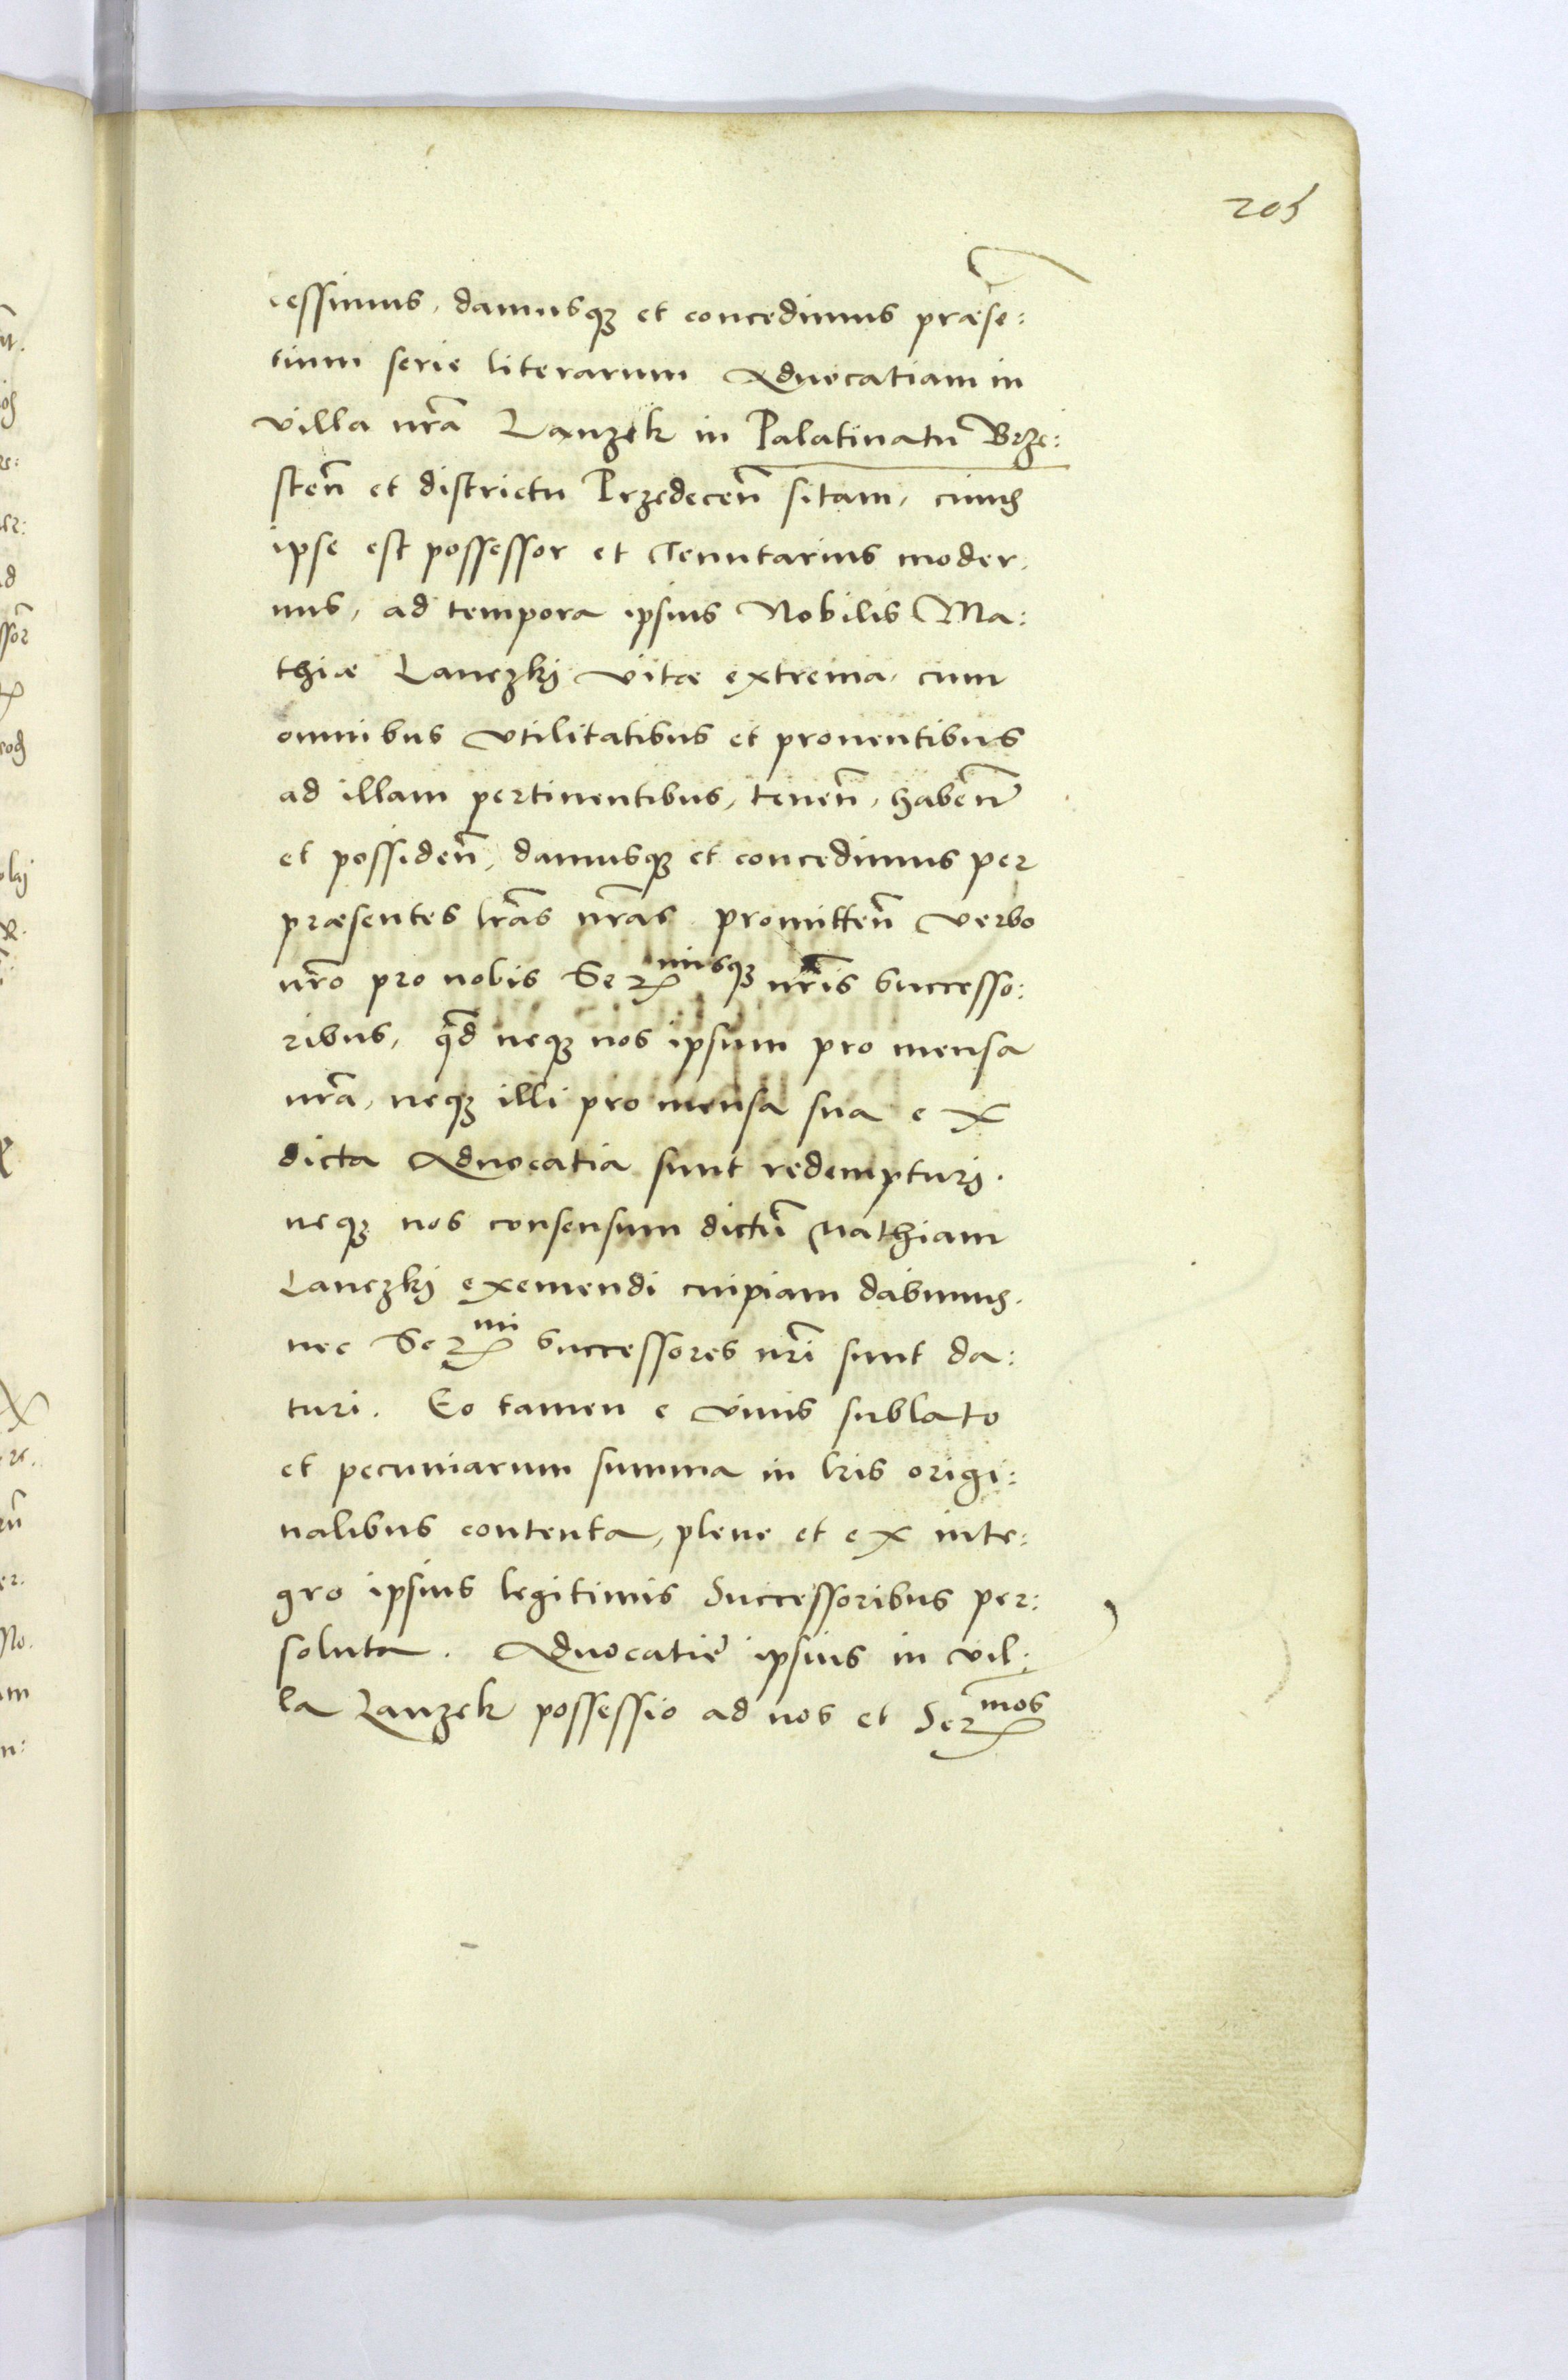 205
cessimus, damusq̃ et concedimus præse:
tium serie literarum Aduocatiam in
villa nrã Lanzek in Palatinatu Brze:
steñ et districtu Przedeceñ sitam, cuius
ipse est possessor et Tenutarius moder
nus, ad tempora ipsius Nobilis Ma:
thiæ Lanczkj vitæ extrema, cum
omnibus vtilitatibus et prouentibus
ad illam pertinentibus, teneñ, habeñ
et possideñ, damusq̃ et concedimus per
præsentes lrãs nrãs promitteñ verbo
nrõ pro nobis Ser misq̃ nrĩs Successo:
ribus, qd̃ neq̃ nos ipsum pro mensa
nrã, neq̃ illi pro mensa sua ex
dicta Aduocatia sunt redempturj.
neq̃ nos consensum dictũ Mathiam
Lanczkj exemendi cuipiam dabimus.
nec Ser mi Successores nrĩ sunt da:
turi. Eo tamen e viuis sublato
et pecuniarum summa in lris origi:
nalibus contenta, plene et ex inte:
gro ipsius legitimis Successoribus per:
soluta. Aduocatiẽ ipsius in vil:
la Lanzek possessio ad nos et Ser mos